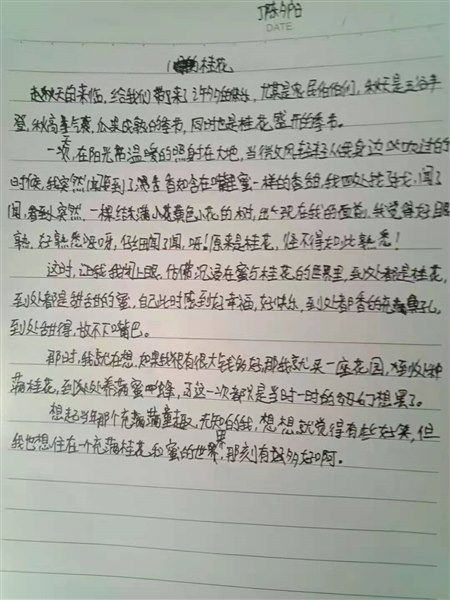 DATE
桂花
秋天的来临，给我们带来了许许多多的快乐，尤其是农民伯伯们，秋天是五谷丰
登，秋高气爽，瓜果成熟的季节，同时也是桂花盛开的季节。
一天，在阳光常温暖的照射在大地，当微风轻轻从我身边吹过的
时候，我突然闻到了清香，含在嘴里蜜一样的香甜，我四处找寻找，闻了
闻，看到突然，一棵结满小黄色小花的树，出现在我的面前，我觉得好眼
熟，好熟悉呀呀，仔细闻了闻，呀！原来是桂花，怪不得如此熟悉！
这时，让我我闭上眼，仿佛沉浸在蜜与桂花的世界里，到处都是桂花，
到处都是甜甜的蜜，自己此时感到好幸福，好快乐，到处都香的充鼻子，
到处甜得，放不下嘴巴。
那时，我就在想，如果我很有很大钱多好，那我就买一座花园，到处种
满桂花，到处养满蜜蜂，这一次都只是当时一时的幻想罢了。
想起当年那个充满童趣，无知的我，想想就觉得有些好笑，但
我也想住在一个充满桂花和蜜的世界，那刻有多好啊。